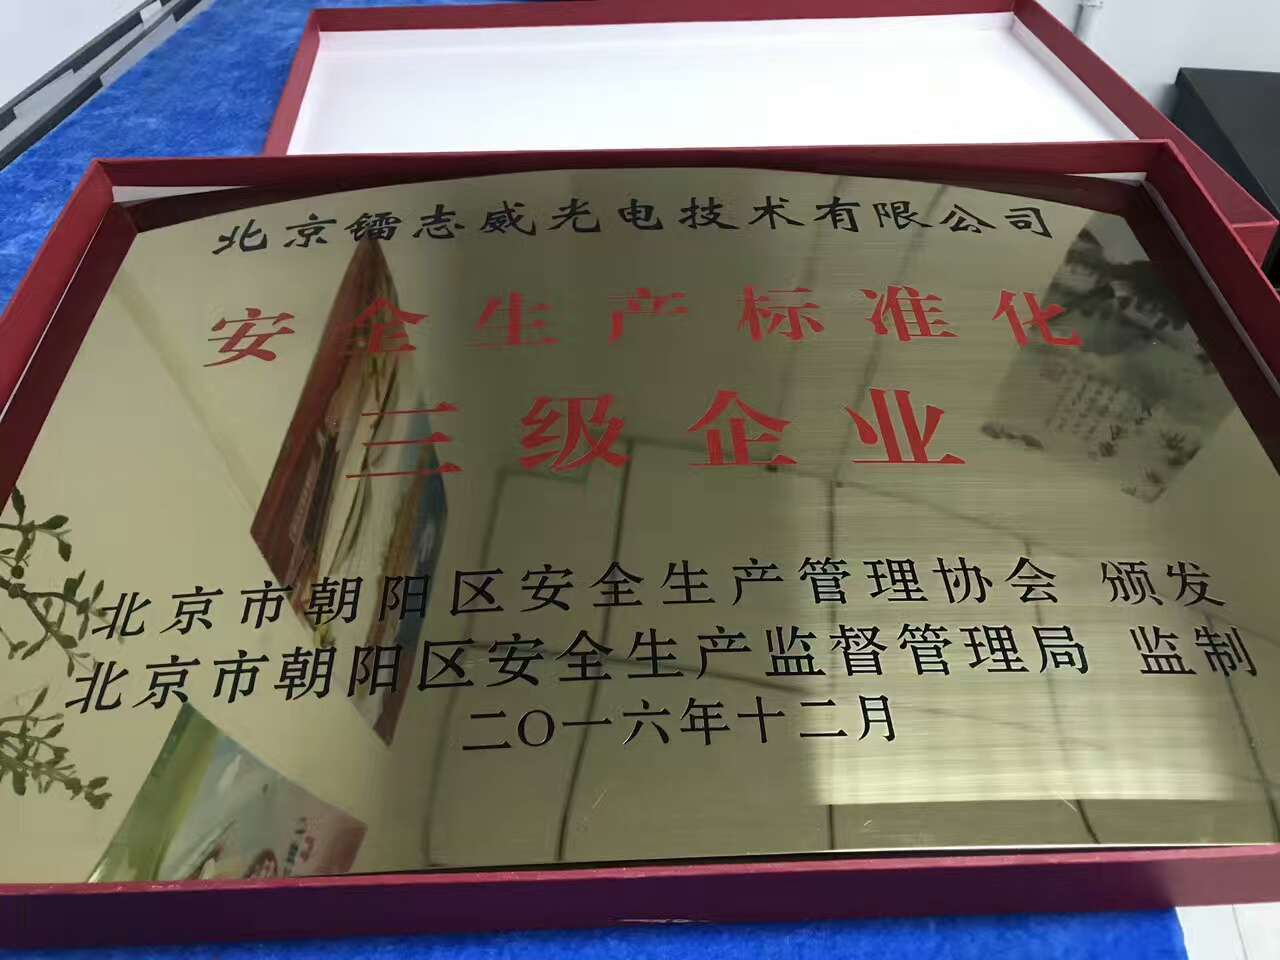 北京镭志威光电技术有限公司
安全生产标准化
三级企业
北京市朝阳区安全生产管理协会 颁发
北京市朝阳区安全生产监督管理局 监制
二〇一六年十二月